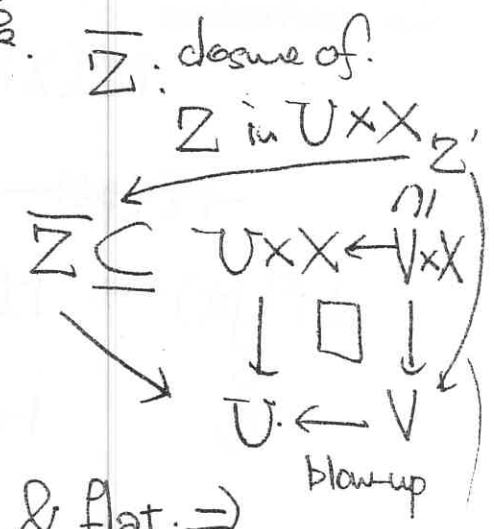 Z̄ : closure of
Z in U×X
Z'
∩|
Z̄ ⊆ U×X ← V×X
↓ □ ↓
U ← V
blow-up
& flat. ⇒